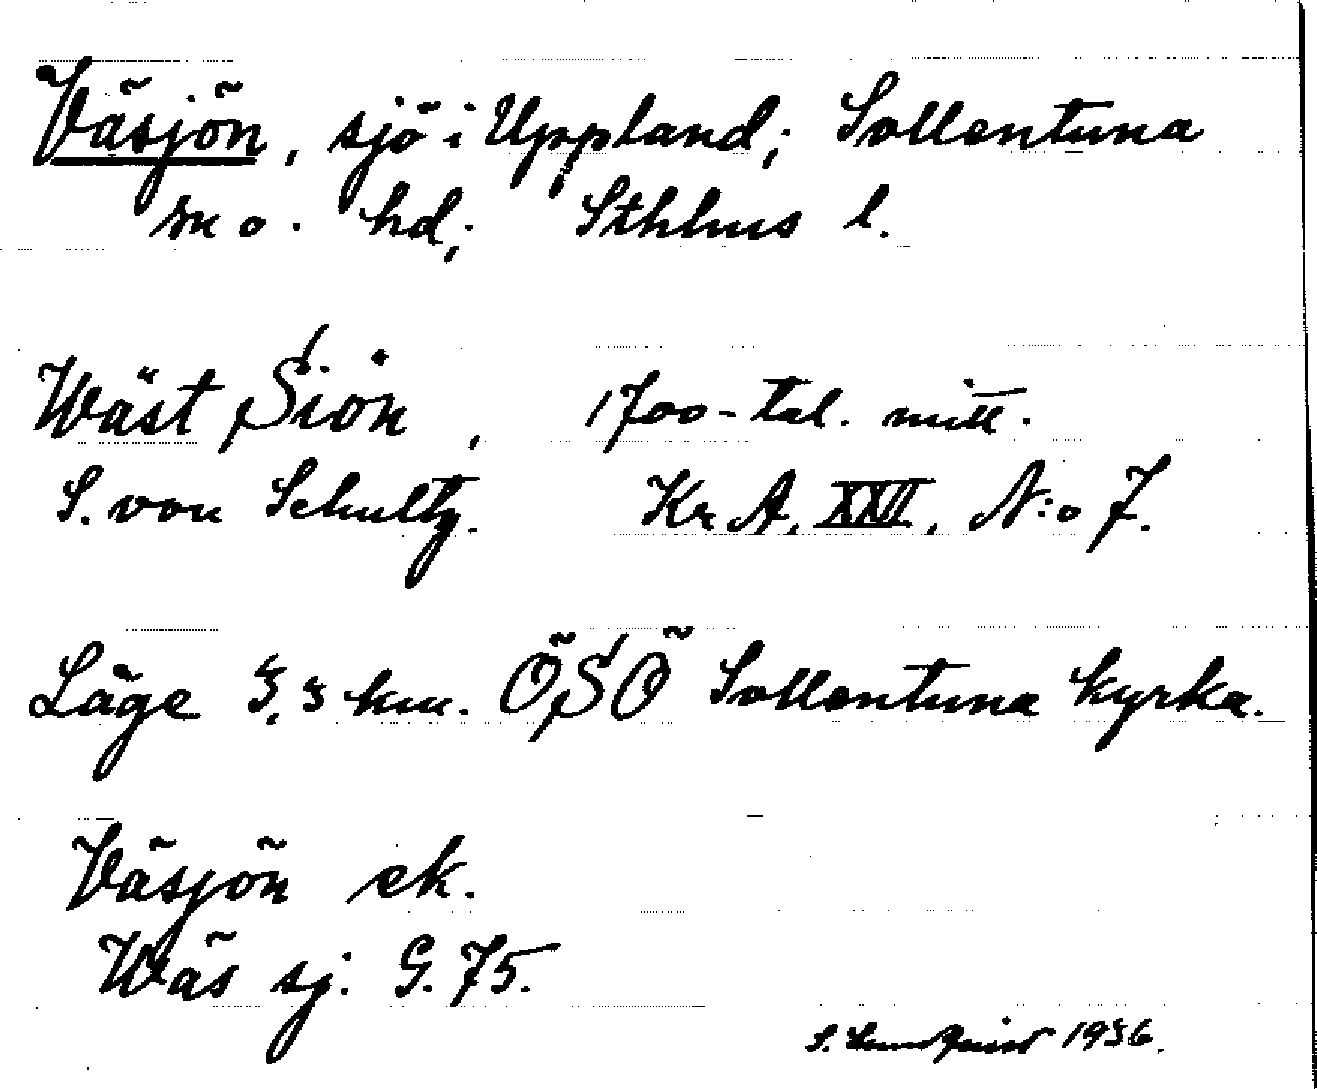 Väsjön, sjö i Uppland; Sollentuna
sn o. hd; Sthlms l.
Wäst Siön, 1700-tal. mitt.
S. von Schultz. KrA, XXVI, N:o 7.
Läge 3,3 km. ÖSÖ Sollentuna kyrka.
Väsjön ek.
Wäs sj. G. 75.
S. 1936.